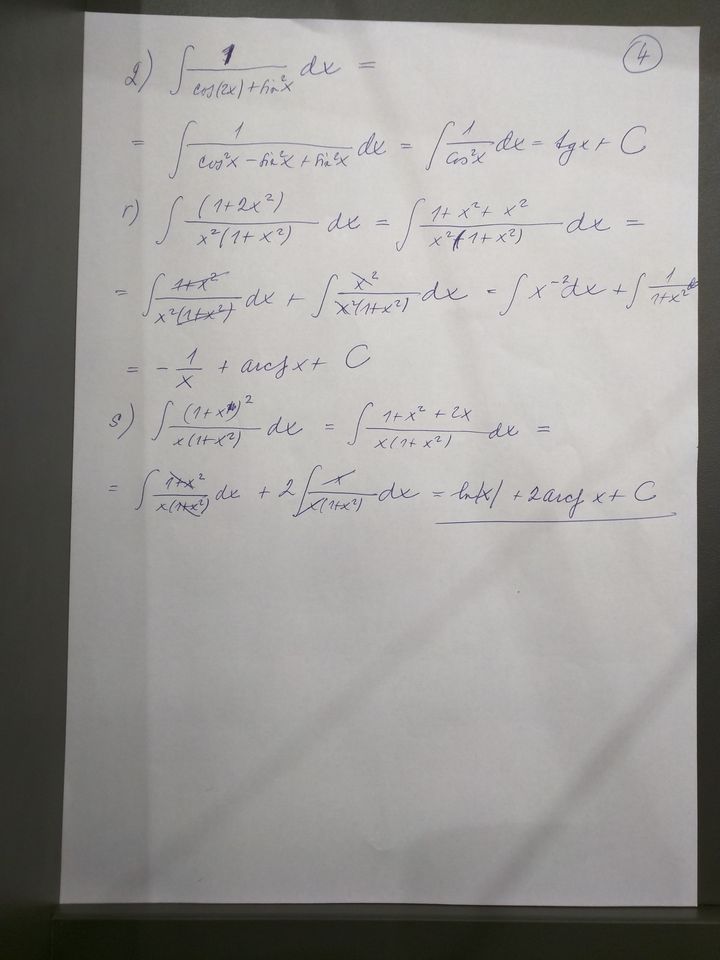 4
2) ∫ 1/(cos(2x) + sin²x) dx =
= ∫ 1/(cos²x - sin²x + sin²x) dx = ∫ 1/cos²x dx = tgx + C
r) ∫ (1+2x²)/(x²(1+x²)) dx = ∫ (1+x²+x²)/(x²(1+x²)) dx =
= ∫ (1+x²)/(x²(1+x²)) dx + ∫ x²/(x²(1+x²)) dx = ∫ x⁻² dx + ∫ 1/(1+x²) dx
= - 1/x + arctg x + C
s) ∫ (1+x)²/(x(1+x²)) dx = ∫ (1+x²+2x)/(x(1+x²)) dx =
= ∫ (1+x²)/(x(1+x²)) dx + 2 ∫ x/(x(1+x²)) dx = ln|x| + 2arctg x + C